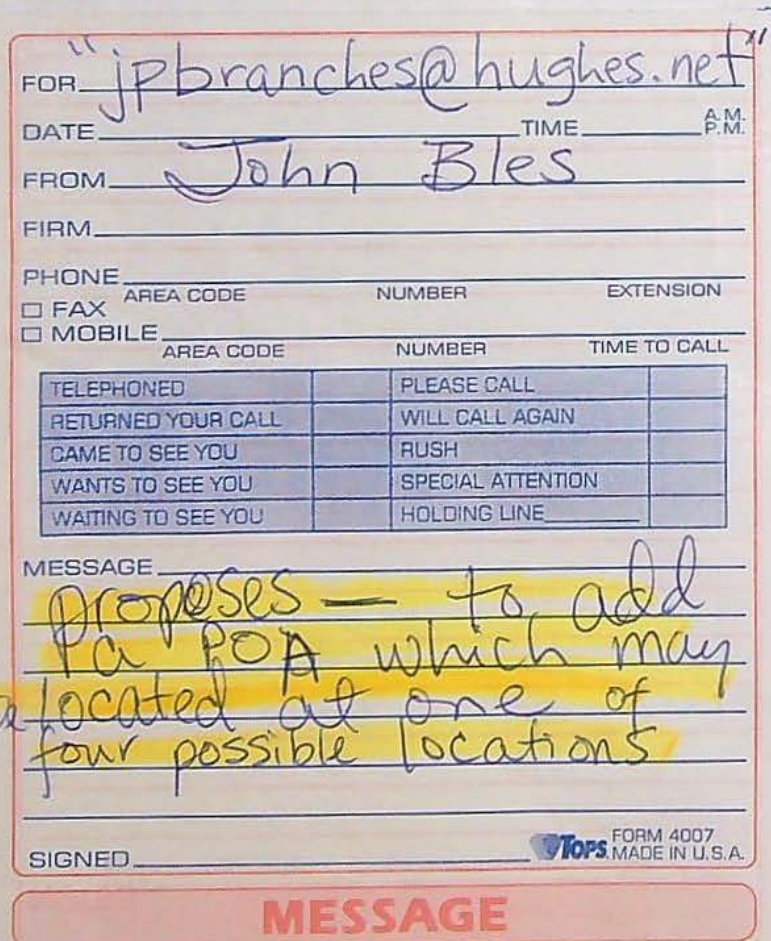 FOR "jpbranches@hughes.net"
DATE TIME A.M. P.M.
FROM John Bles
FIRM
PHONE
AREA CODE NUMBER EXTENSION
☐ FAX
☐ MOBILE
AREA CODE NUMBER TIME TO CALL
TELEPHONED PLEASE CALL
RETURNED YOUR CALL WILL CALL AGAIN
CAME TO SEE YOU RUSH
WANTS TO SEE YOU SPECIAL ATTENTION
WAITING TO SEE YOU HOLDING LINE
MESSAGE
proposes — to add
a POA which may
located at one of
four possible locations
SIGNED TOPS FORM 4007
MADE IN U.S.A.
MESSAGE